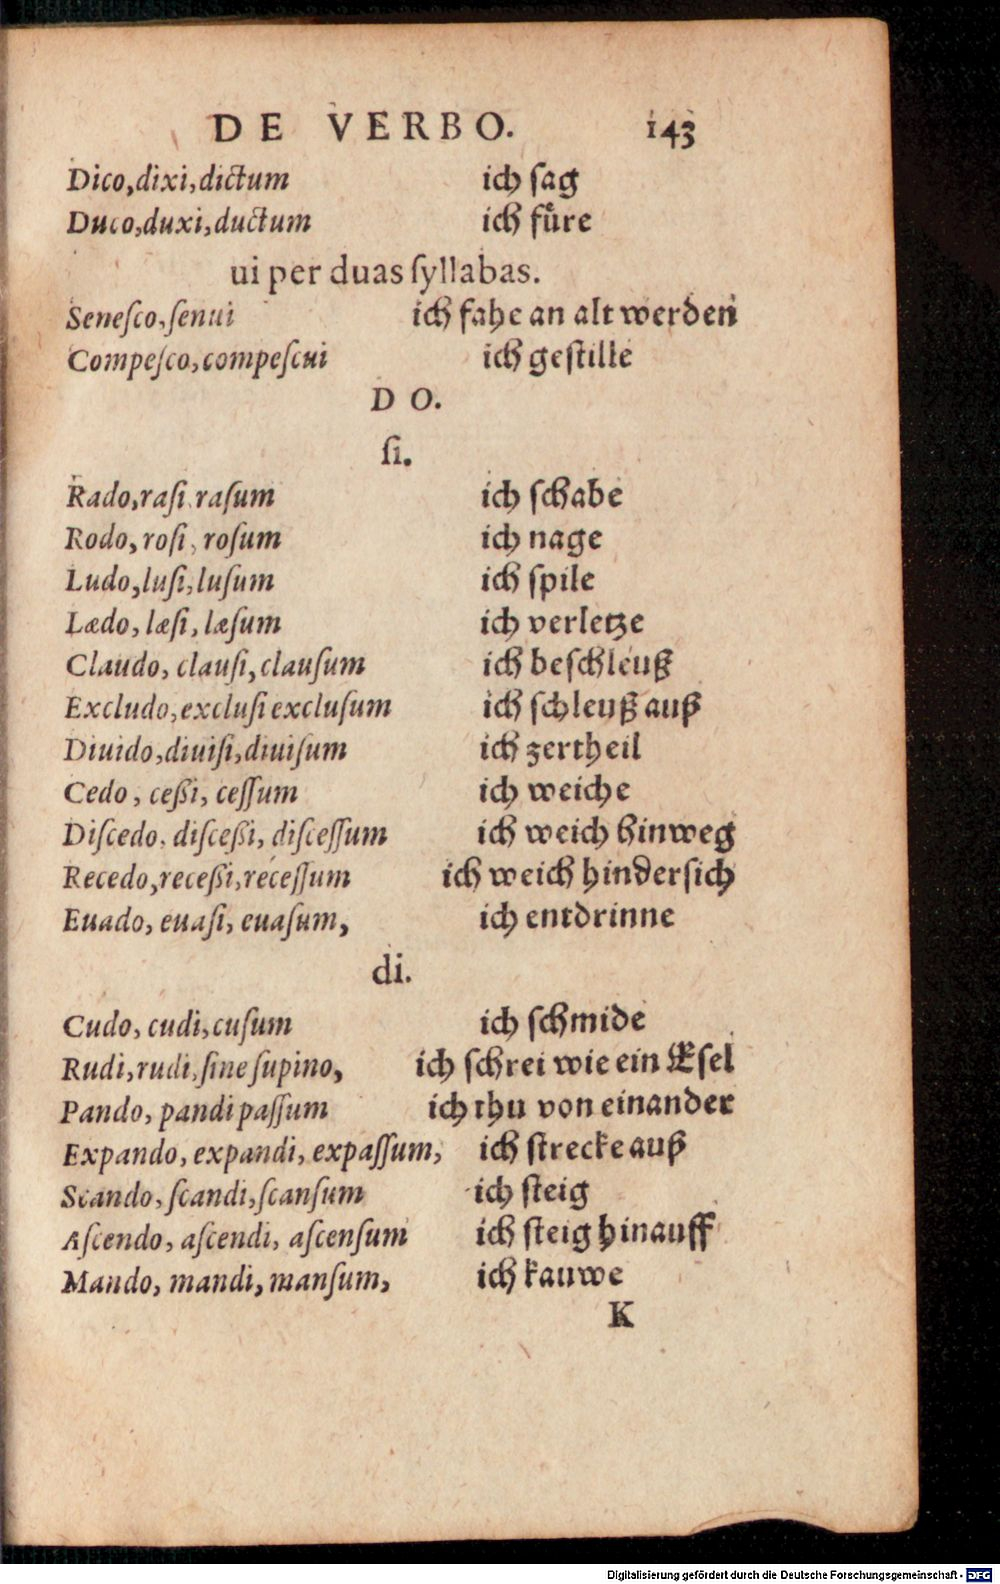 DE VERBO. 143
Dico, dixi, dictum ich ſag
Duco, duxi, ductum ich fuͤre
ui per duas ſyllabas.
Seneſco, ſenui ich fahe an alt werden
Compeſco, compeſcui ich geſtille
D O.
ſi.
Rado, raſi, raſum ich ſchabe
Rodo, roſi, roſum ich nage
Ludo, luſi, luſum ich ſpile
Lædo, læſi, læſum ich verletze
Claudo, clauſi, clauſum ich beſchleuß
Excludo, excluſi excluſum ich ſchleuß auß
Diuido, diuiſi, diuiſum ich zertheil
Cedo, ceßi, ceſſum ich weiche
Diſcedo, diſceßi, diſceſſum ich weich hinweg
Recedo, receßi, receſſum ich weich hinderſich
Euado, euaſi, euaſum, ich entdrinne
di.
Cudo, cudi, cuſum ich ſchmide
Rudi, rudi, ſine ſupino, ich ſchrei wie ein Eſel
Pando, pandi paſſum ich thu von einander
Expando, expandi, expaſſum, ich ſtrecke auß
Scando, ſcandi, ſcanſum ich ſteig
Aſcendo, aſcendi, aſcenſum ich ſteig hinauff
Mando, mandi, manſum, ich kauwe
K
Digitalisierung gefördert durch die Deutsche Forschungsgemeinschaft - DFG